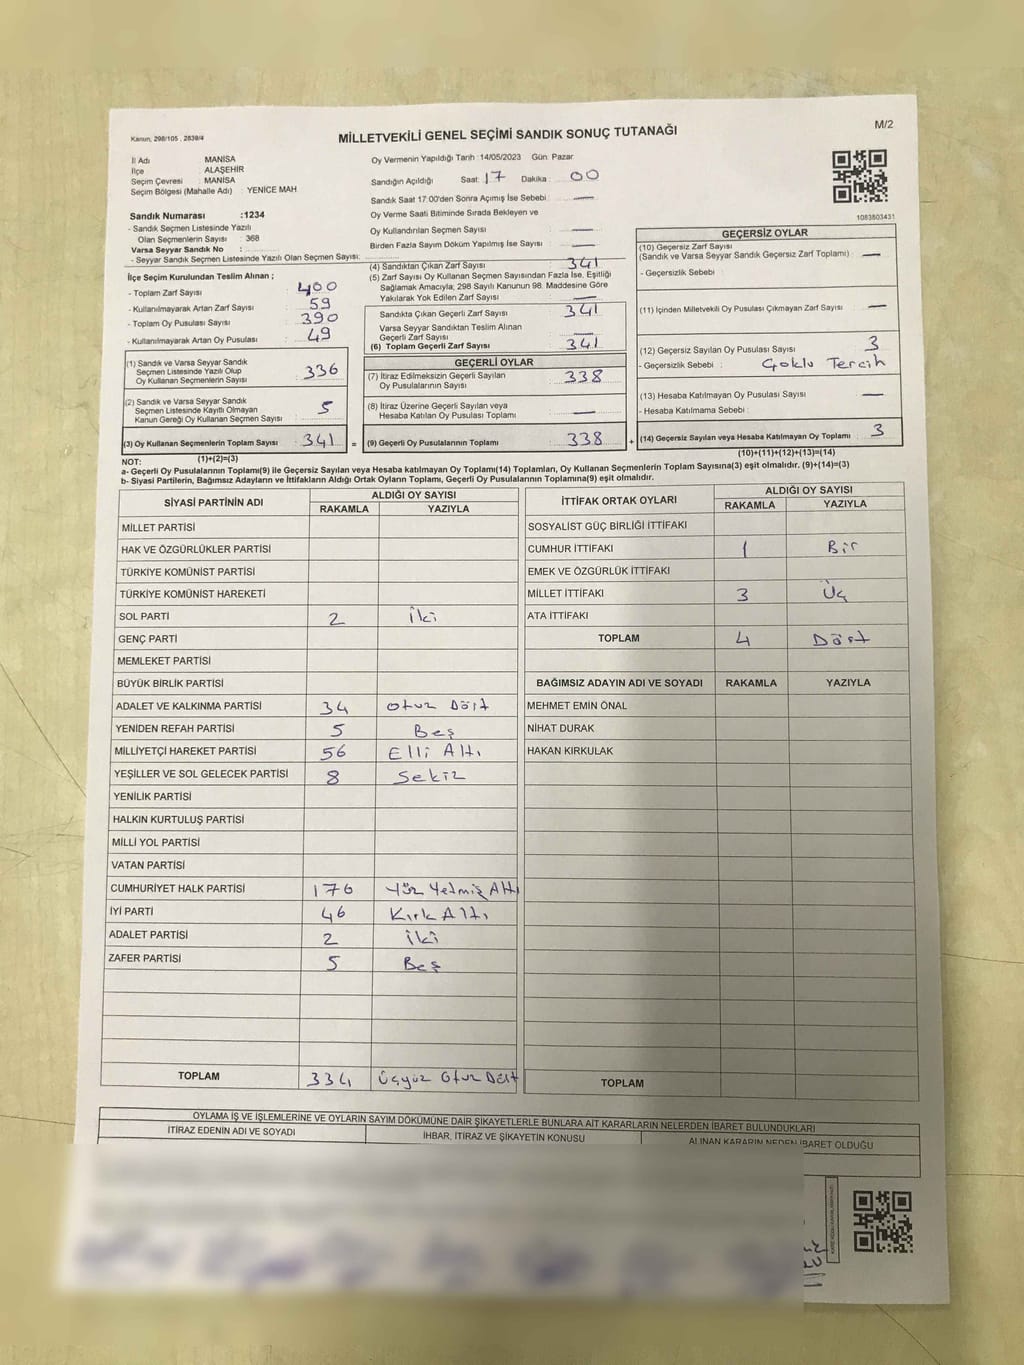 Kanun, 298/105 , 2839/4
MİLLETVEKİLİ GENEL SEÇİMİ SANDIK SONUÇ TUTANAĞI
M/2
İl Adı MANİSA
İlçe ALAŞEHİR
Seçim Çevresi : MANİSA
Seçim Bölgesi (Mahalle Adı) : YENİCE MAH
Sandık Numarası :1234
- Sandık Seçmen Listesinde Yazılı
Olan Seçmenlerin Sayısı : 368
Varsa Seyyar Sandık No :
- Seyyar Sandık Seçmen Listesinde Yazılı Olan Seçmen Sayısı:
Oy Vermenin Yapıldığı Tarih :14/05/2023 Gün: Pazar
Sandığın Açıldığı Saat: 17 Dakika : 00
Sandık Saat 17:00'den Sonra Açımış İse Sebebi : —
Oy Verme Saati Bitiminde Sırada Bekleyen ve
Oy Kullandırılan Seçmen Sayısı : —
Birden Fazla Sayım Döküm Yapılmış İse Sayısı : —
1083803431
İlçe Seçim Kurulundan Teslim Alınan ;
- Toplam Zarf Sayısı : 400
- Kullanılmayarak Artan Zarf Sayısı : 59
- Toplam Oy Pusulası Sayısı : 390
- Kullanılmayarak Artan Oy Pusulası : 49
(1) Sandık ve Varsa Seyyar Sandık
Seçmen Listesinde Yazılı Olup
Oy Kullanan Seçmenlerin Sayısı : 336
(2) Sandık ve Varsa Seyyar Sandık
Seçmen Listesinde Kayıtlı Olmayan
Kanun Gereği Oy Kullanan Seçmen Sayısı : 5
(3) Oy Kullanan Seçmenlerin Toplam Sayısı : 341 =
(1)+(2)=(3)
(4) Sandıktan Çıkan Zarf Sayısı : 341
(5) Zarf Sayısı Oy Kullanan Seçmen Sayısından Fazla İse, Eşitliği
Sağlamak Amacıyla; 298 Sayılı Kanunun 98. Maddesine Göre
Yakılarak Yok Edilen Zarf Sayısı : —
Sandıkta Çıkan Geçerli Zarf Sayısı : 341
Varsa Seyyar Sandıktan Teslim Alınan
Geçerli Zarf Sayısı :
(6) Toplam Geçerli Zarf Sayısı : 341
GEÇERLİ OYLAR
(7) İtiraz Edilmeksizin Geçerli Sayılan
Oy Pusulalarının Sayısı : 338
(8) İtiraz Üzerine Geçerli Sayılan veya
Hesaba Katılan Oy Pusulası Toplamı : —
(9) Geçerli Oy Pusulalarının Toplamı : 338 +
GEÇERSİZ OYLAR
(10) Geçersiz Zarf Sayısı
(Sandık ve Varsa Seyyar Sandık Geçersiz Zarf Toplamı) : —
- Geçersizlik Sebebi :
(11) İçinden Milletvekili Oy Pusulası Çıkmayan Zarf Sayısı : —
(12) Geçersiz Sayılan Oy Pusulası Sayısı : 3
- Geçersizlik Sebebi : Çoklu Tercih
(13) Hesaba Katılmayan Oy Pusulası Sayısı : —
- Hesaba Katılmama Sebebi :
(14) Geçersiz Sayılan veya Hesaba Katılmayan Oy Toplamı : 3
(10)+(11)+(12)+(13)=(14)
NOT:
a- Geçerli Oy Pusulalarının Toplamı(9) ile Geçersiz Sayılan veya Hesaba katılmayan Oy Toplamı(14) Toplamları, Oy Kullanan Seçmenlerin Toplam Sayısına(3) eşit olmalıdır. (9)+(14)=(3)
b- Siyasi Partilerin, Bağımsız Adayların ve İttifakların Aldığı Ortak Oyların Toplamı, Geçerli Oy Pusulalarının Toplamına(9) eşit olmalıdır.
SİYASİ PARTİNİN ADI ALDIĞI OY SAYISI
RAKAMLA YAZIYLA
MİLLET PARTİSİ
HAK VE ÖZGÜRLÜKLER PARTİSİ
TÜRKİYE KOMÜNİST PARTİSİ
TÜRKİYE KOMÜNİST HAREKETİ
SOL PARTİ 2 İki
GENÇ PARTİ
MEMLEKET PARTİSİ
BÜYÜK BİRLİK PARTİSİ
ADALET VE KALKINMA PARTİSİ 34 Otuz Dört
YENİDEN REFAH PARTİSİ 5 Beş
MİLLİYETÇİ HAREKET PARTİSİ 56 Elli Altı
YEŞİLLER VE SOL GELECEK PARTİSİ 8 Sekiz
YENİLİK PARTİSİ
HALKIN KURTULUŞ PARTİSİ
MİLLİ YOL PARTİSİ
VATAN PARTİSİ
CUMHURİYET HALK PARTİSİ 176 Yüz Yetmiş Altı
İYİ PARTİ 46 Kırk Altı
ADALET PARTİSİ 2 İki
ZAFER PARTİSİ 5 Beş
TOPLAM 334 Üçyüz Otuz Dört
İTTİFAK ORTAK OYLARI ALDIĞI OY SAYISI
RAKAMLA YAZIYLA
SOSYALİST GÜÇ BİRLİĞİ İTTİFAKI
CUMHUR İTTİFAKI 1 Bir
EMEK VE ÖZGÜRLÜK İTTİFAKI
MİLLET İTTİFAKI 3 Üç
ATA İTTİFAKI
TOPLAM 4 Dört
BAĞIMSIZ ADAYIN ADI VE SOYADI RAKAMLA YAZIYLA
MEHMET EMİN ÖNAL
NİHAT DURAK
HAKAN KIRKULAK
TOPLAM
OYLAMA İŞ VE İŞLEMLERİNE VE OYLARIN SAYIM DÖKÜMÜNE DAİR ŞİKAYETLERLE BUNLARA AİT KARARLARIN NELERDEN İBARET BULUNDUKLARI
İTİRAZ EDENİN ADI VE SOYADI İHBAR, İTİRAZ VE ŞİKAYETİN KONUSU ALINAN KARARIN NEDEN İBARET OLDUĞU